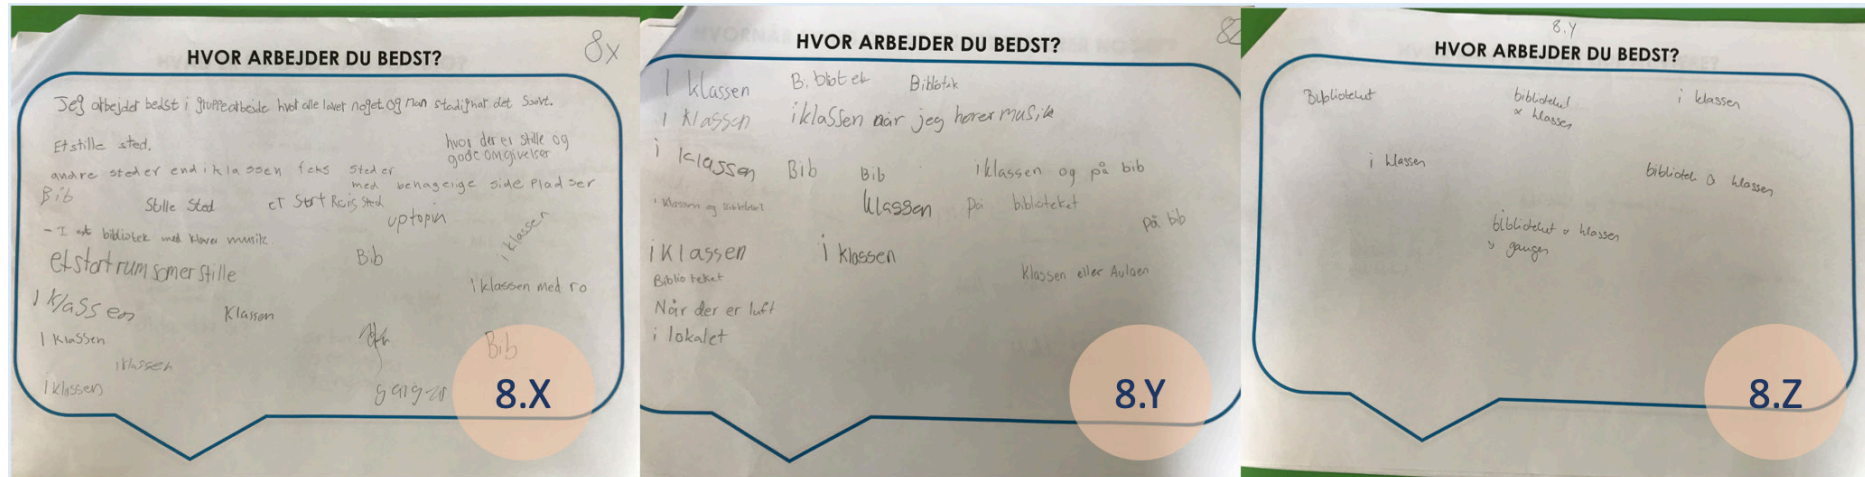 8X
HVOR ARBEJDER DU BEDST?
Jeg arbejder bedst i gruppearbejde hvor alle laver noget og man stadig har det sovt.
Et stille sted.
hvor der er stille og
gode omgivelser
andre steder end i klassen feks steder
med behagelige side pladser
Bib
Stille Sted
et Stort Rolig sted
uptopin
- I et bibliotek med klaver musik
i klassen
et stort rum som er stille
Bib
i klassen med ro
I klassen
Klassen
I klassen
Bib
i klassen
I klassen
8.X
HVOR ARBEJDER DU BEDST?
I klassen
B.bliotek
Bibliotik
I klassen
i klassen når jeg hører musik
i klassen
Bib
Bib
i klassen og på bib
i klassen og biblioteket
klassen
på biblioteket
på bib
i klassen
i klassen
Klassen eller Aulaen
Biblioteket
Når der er luft
i lokalet
8.Y
8.Y
HVOR ARBEJDER DU BEDST?
Biblioteket
bibliotekt
& klassen
i klassen
i klassen
bibliotek & klassen
biblioteket & klassen
& gangen
8.Z